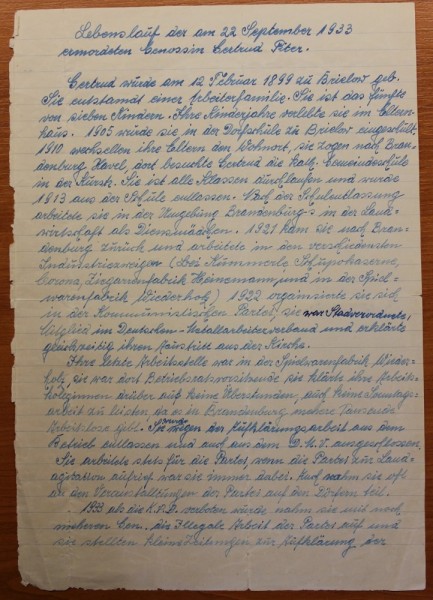 Lebenslauf der am 22 September 1933
ermordeten Genossin Gertrud Piter.
Gertrud würde am 12 Februar 1899 zu Brielow geb.
Sie entstamt einer Arbeiterfamilie. Sie ist das fünfte
von sieben Kindern. Ihre Kinderjahre verlebte sie im Eltern-
haus. 1905 würde sie in der Dorfschüle zu Brielow eingeschült
1910 wechselten ihre Eltern den Wohnort, sie zogen nach Bran-
denbürg Havel, dort besuchte Gertrud die Kath. Gemeindeschüle
in der Kürstr. Sie ist alle Klassen dürchlaufen und würde
1813 aus der Schüle entlassen. Nach der Schülentlassung
arbeitete sie in der Umgebüng Brandenbürgs in der Land-
wirtschaft als Dienstmädchen. 1921 kam sie nach Bran-
denbürg zürück und arbeitete in den verschiedensten
Indüstriezweigen (bei Kümmerle
Corona, Zigarrenfabrik Heinemann, und in der Spiel-
warenfabrik Wiederholz) 1922 organisierte sie sich
in der Kommunistischen Partei, sie war Stadtverordnete,
Mitglied im Deutschen-Metallarbeiterverband und erklärte
gleichzeitig ihren Aüstritt aus der Kirche.
Ihre letzte Arbeitsstelle war in der Spielwarenfabrik Wieder-
holz, sie war dort Betriebsratsvorsitzende sie klärte ihre Arbeits-
kolleginnen darüber auf keine Überstünden, und keine Sonntags-
arbeit zu leisten da es in Brandenbürg mehere Taüsende
Arbeitslose gibt. Sie würde wegen der Aüfklärüngsarbeit aus dem
Betrieb entlassen und auch aus dem D.M.V. ausgeschlossen
Sie arbeitete stets für die Partei, wenn die Partei zür Land-
agitation aufrief war sie immer dabei. Aüch nahm sie oft
an den Veranstaltüngen der Partei auf den Dörfern teil.
1933 als die K.P.D. verboten würde, nahm sie mit noch
meheren Gen. die Illegale Arbeit der Partei auf und
sie stellten kleine Zeitüngen zür Aüfklärüng der